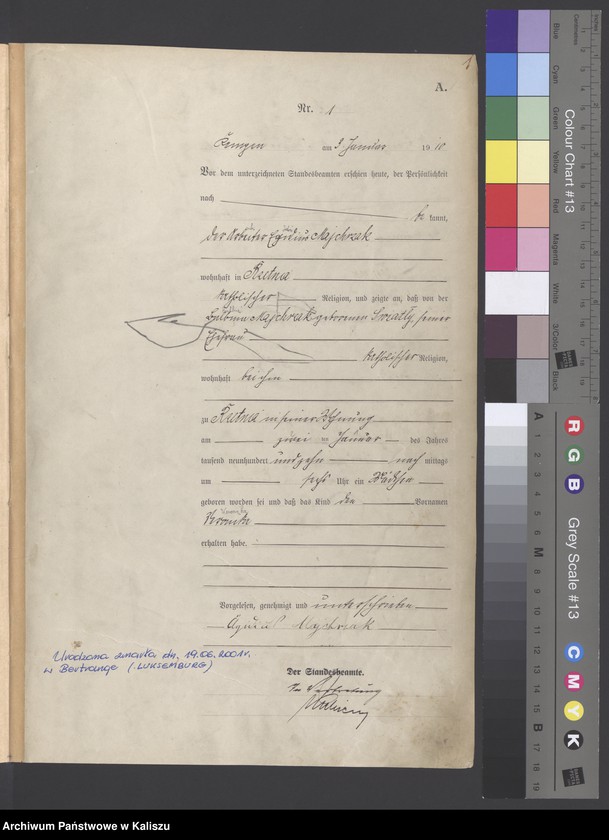 1
A.
Nr. 1
Kempen am 3 Januar 1910
Vor dem unterzeichneten Standesbeamten erschien heute, der Persönlichkeit
nach
be kannt,
der Arbeiter Egidius Majchrzak
wohnhaft in Rzetnia
katholischer Religion, und zeigte an, daß von der
Majchrzak geborenen seiner
Ehefrau
katholischer Religion,
wohnhaft bei ihm
zu Rzetnia in seiner Wohnung
am zwei ten Januar des Jahres
tausend neunhundert und zehn nach mittags
um sechs Uhr ein Mädchen
geboren worden sei und daß das Kind den Vornamen
erhalten habe.
Vorgelesen, genehmigt und unterschrieben
Majchrzak
Urodzona zmarła dn. 19.06.2001r.
w Bertrange (LUKSEMBURG)
Der Standesbeamte.
In Vertretung
Archiwum Państwowe w Kaliszu
Colour Chart #13
Blue
Cyan
Green
Yellow
Red
Magenta
White
3/Color
Black
Centimetres
Inches
Grey Scale #13
R
G
B
C
M
Y
K
A
1
2
3
4
5
6
M
8
9
10
11
12
13
14
15
B
17
18
19